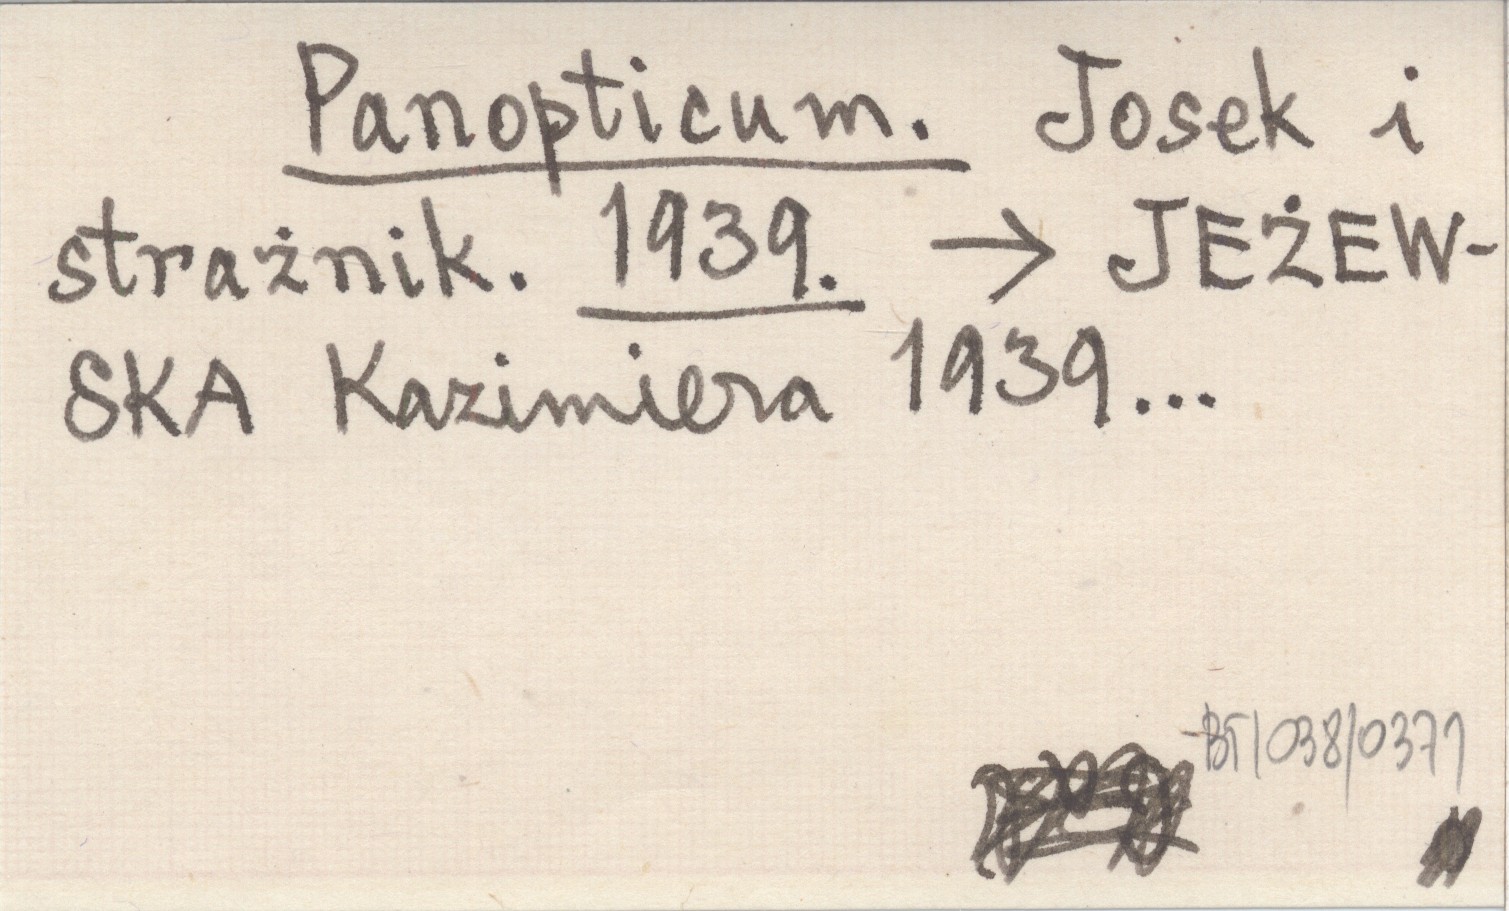 Panopticum. Josek i
strażnik. 1939. → JEŻEW-
SKA Kazimiera 1939...
BT/038/0371